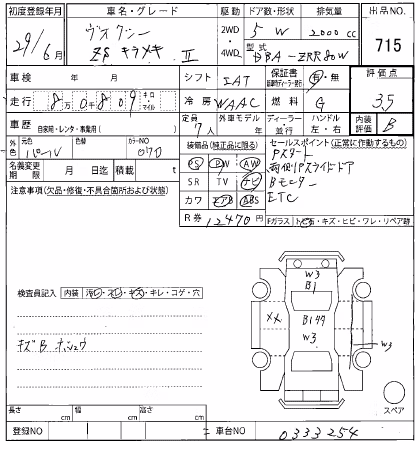 初度登録年月 車名・グレード 駆動 ドア数・形状 排気量 出品NO.
29/6月 ヴォクシー 2WD 5 W 2000cc 715
ZSキラメキ II 4WD 型式 DBA-ZRR80W
車検 年 月 シフト IAT 保証書 有・無 評価点
走行 8万0千809 キロ マイル 冷房 WAAC 燃料 G 3.5
車歴 自家用・レンタ・事業用( ) 定員 7人 外車モデル 年 ディーラー 並行 ハンドル 左・右 内装評価 B
外色 元色 パール 色替 カラーNO 070 装備品(純正品に限る) セールスポイント(正常に作動するもの)
名義変更期限 月 日迄 積載 t PS PW AW Pスタート
注意事項(欠品・修復・不具合箇所および状態) SR TV ナビ 両側Pスライドドア
カワ エアB ABS Bモニター
R券 12470円 ETC
Fガラス トビ石・キズ・ヒビ・ワレ・リペア跡
検査員記入 内装 汚レ・スレ・キズ・キレ・コゲ・穴
キズB ホシュウ
W3
B1
XX
B1 44
W3
W3
スペア
長さ cm 幅 cm 高さ cm
登録NO 車台NO 0333254